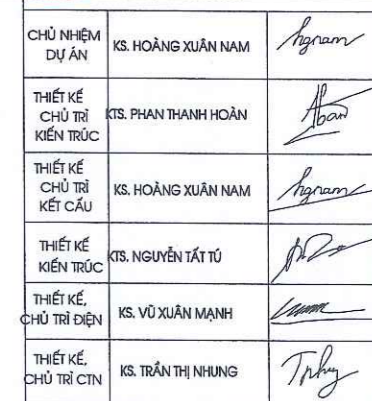 CHỦ NHIỆM
DỰ ÁN
KS. HOÀNG XUÂN NAM
hgnam
THIẾT KẾ
CHỦ TRÌ
KIẾN TRÚC
KTS. PHAN THANH HOÀN
THIẾT KẾ
CHỦ TRÌ
KẾT CẤU
KS. HOÀNG XUÂN NAM
hgnam
THIẾT KẾ
KIẾN TRÚC
KTS. NGUYỄN TẤT TÚ
THIẾT KẾ,
CHỦ TRÌ ĐIỆN
KS. VŨ XUÂN MẠNH
THIẾT KẾ,
CHỦ TRÌ CTN
KS. TRẦN THỊ NHUNG